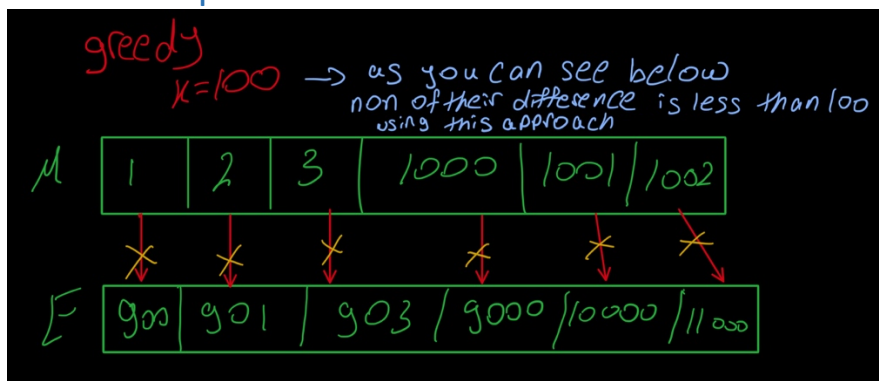 greedy
x=100 → as you can see below
non of their difference is less than 100
using this approach
M 1 2 3 1000 1001 1002
F 900 901 903 9000 10000 11000